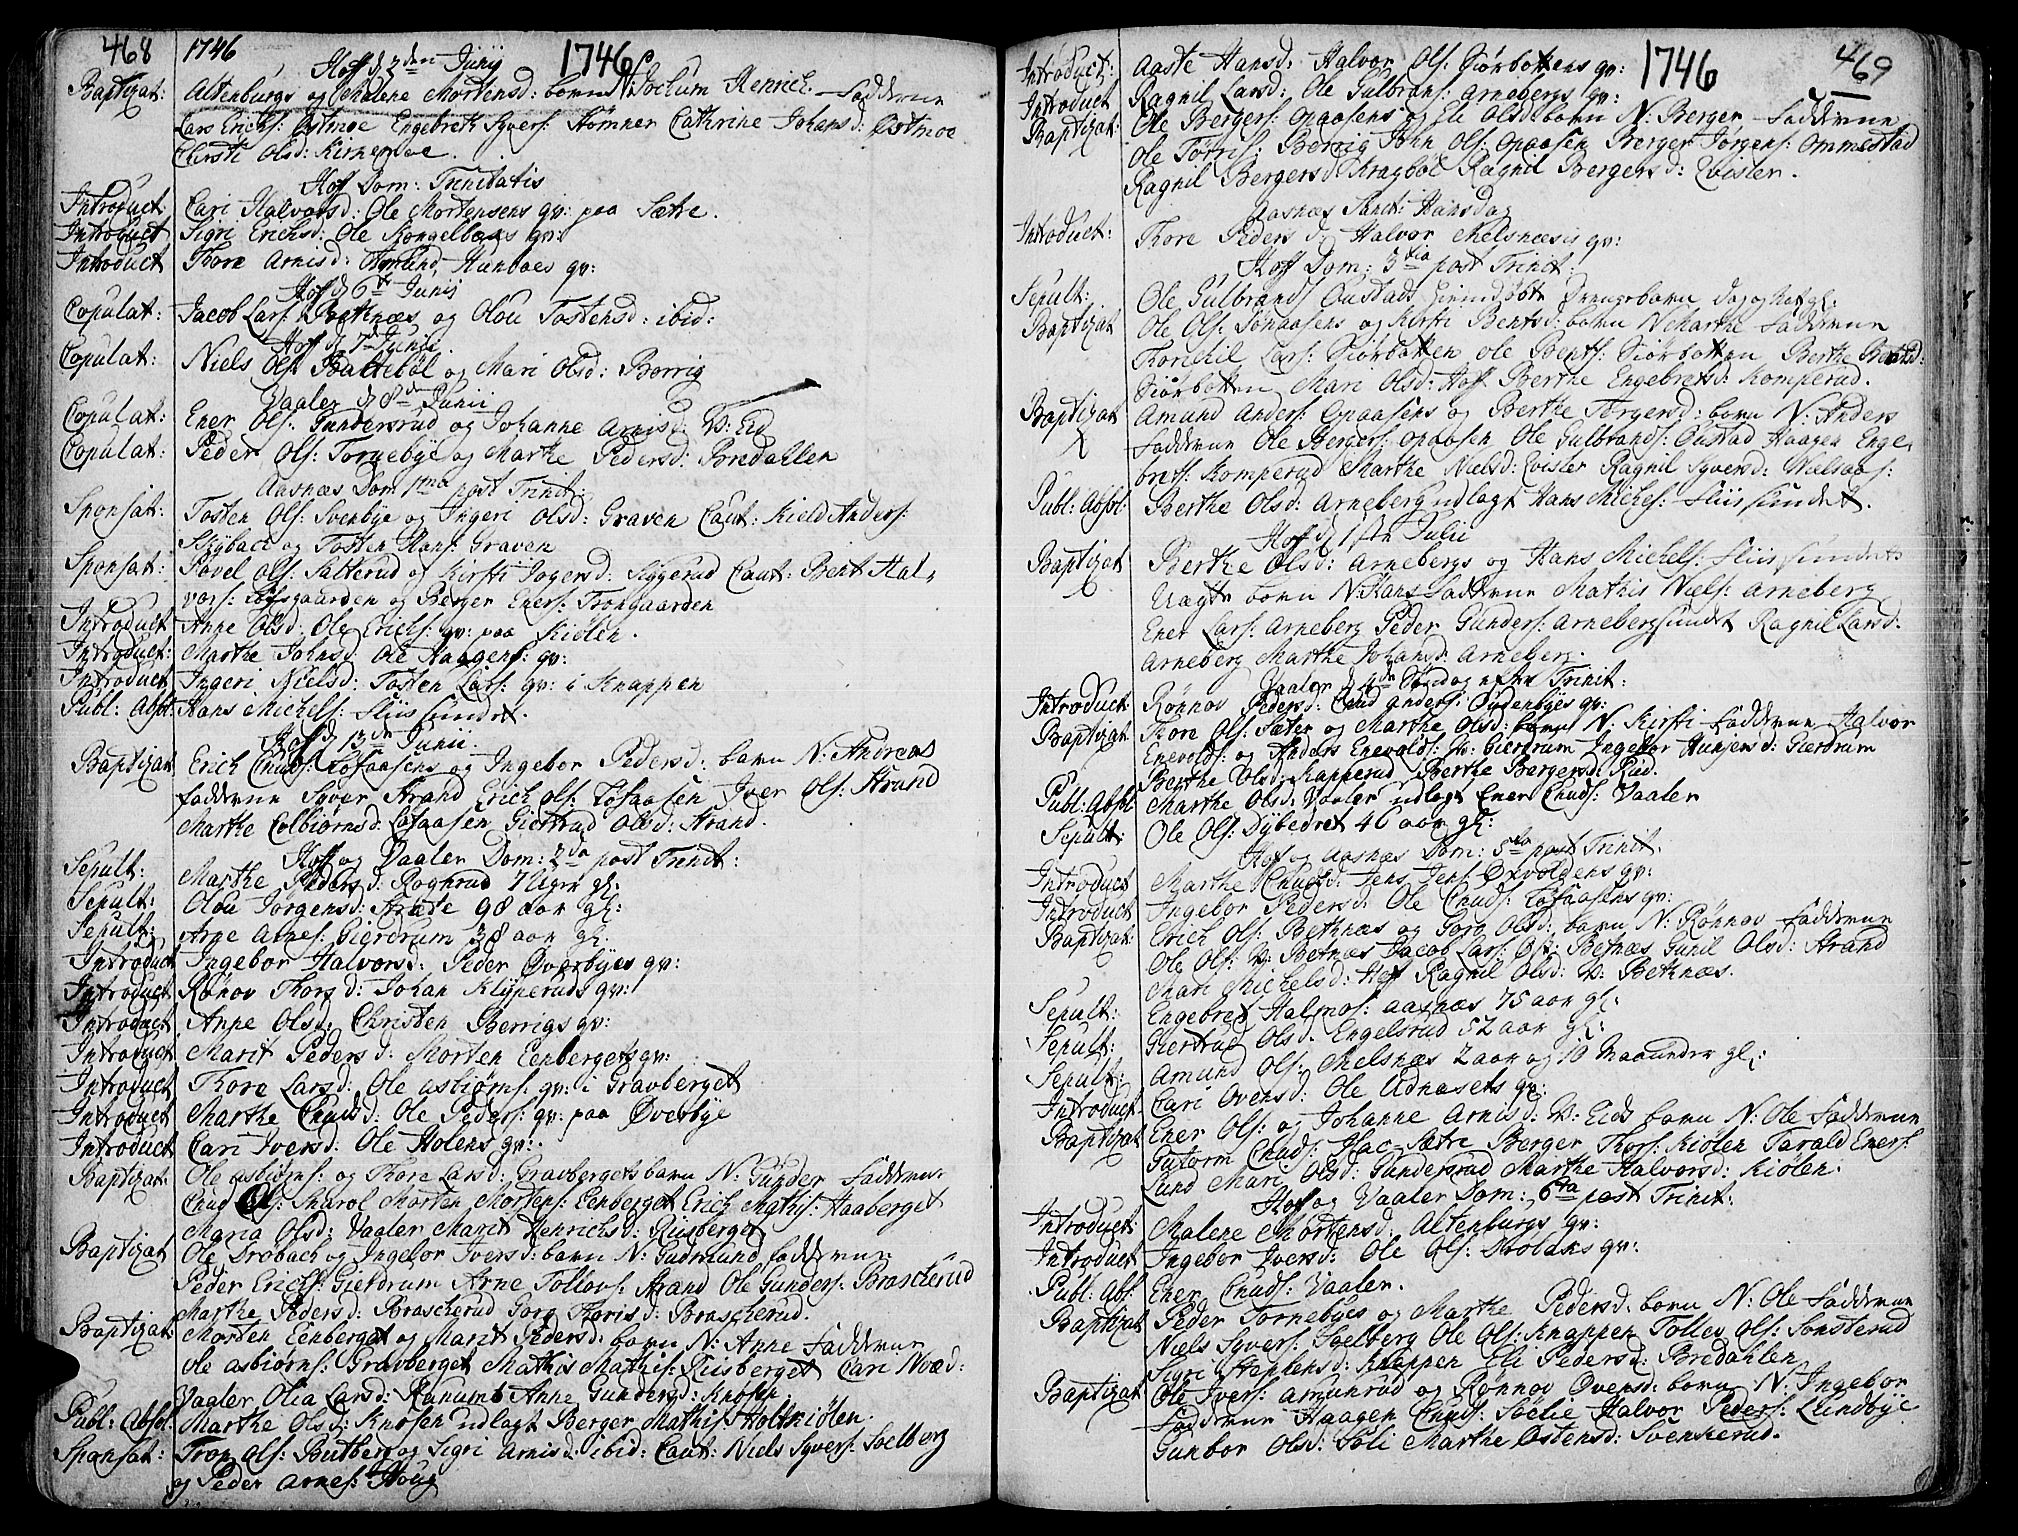 468 1746 1746
Hoff d 2den Junij
Baptizat: Altenburgs og Malene Mortensd: barn N Jochum Henrich Fadderne
Lars Erichs: Ostmoe Engebreth Syvers: Hømner Cathrine Johansd: Østmoe
Christi Olsd: Kirkemoe.
Hof Dom: Trinitatis
Introduct Cari Halvorsd: Ole Mortensens qv: paa Sætre.
Introduct Sigri Erichsd: Ole Kongelbæks qv:
Introduct Thore Arnisd: Asmund Hunboes qv:
Hof d 6te Junij
Copulat: Jacob Lars: Betknæs og Olou Tostensd: ibid:
Hof d 7de Junii.
Copulat: Niels Ols: Baltebøl og Mari Olsd: Berrig
Vaaler d 8de Junii
Copulat: Ener Ols: Gundersrud og Johanne Arnisd: V: Eid
Copulat: Peder Ols: Torgebye og Marthe Pedersd: Bredahlen
Aasnæs Dom 1ma post Trinit:
Sponsat: Tosten Ols: Svenbye og Ingeri Olsd: Graven Caut: Kield Anders:
Skÿbach og Tosten Hans: Graven
Sponsat: Povel Ols: Salterud og Kirsti Jogersd: Siggerud Caut: Bent Hal,
vors: Lofsgaarden og Berger Eners: Trongaarden
Introduct Anne Olsd: Ole Erichs: qv: paa Kiølen.
Introduct: Marthe Johnsd: Ole Haagens: qv:
Introduct Ingeri Nielsd: Tosten Lars: qv: i Knappen
Publ: Absol: Hans Michels: Fliissundet.
Hof d 13de Junii.
Baptizat Erich Cnuds: Lofaasens og Ingebor Pedersd: barn N: Andreas
fadderne Syver Strand Erich Ols: Lofaasen Iver Ols: Strand
Marthe Colbiørnsd: Lofaasen Giertrud Olsd: Strand.
Hoff og Vaaler Dom: 2da post Trinit:
Sepult: Marthe Pedersd: Rognrud 7 Uger gl:
Sepult: Olou Jørgensd: Strade 98 aar gl:
Sepult: Arne Arnes: Gierdrum 38 aar gl:
Introduct Ingebor Halvorsd: Peder Øverbyes qv:
Introduct Rønov Thorsd: Johan Klÿperuds qv:
Introduct Anne Olsd: Christen Berrigs qv:
Introduct Marit Pedersd: Morten Eenbergets qv:
Introduct Thore Larsd: Ole Asbiørns: qv: i Gravberget
Introduct Marthe Cnudsd: Ole Peders: qv: paa Øverbye
Introduct Cari Iversd: Ole Holens qv:
Baptizat Ole Asbiørns: og Thore Larsd: Gravbergets barn N: Gunder Fadderne
Cnud Ols: Skarol Morten Mortens: Eenberget Erich Mathis: Haaberget
Maria Olsd: Vaaler Marit Henrichsd: Riisberget
Baptizat Ole Drobach og Ingebor Iversd: barn N: Gudmund fadderne
Peder Erichs: Gierdrum Arne Tollovs: Strand Ole Gunders: Brascherud
Marthe Pedersd: Brascherud Goro Thorisd: Brascherud.
Baptizat: Morten Eenberget og Marit Pedersd: barn N: Anne Fadderne
Ole Asbiørns: Gravberget Mathis Mathis: Riisberget Cari Nvæd:
Vaaler Olia Larsd: Ranumb Anne Gundersd: Knosen.
Publ: Absol: Marthe Olsd: Knosen udlagt Berger Mathis: Holtkiølen.
Sponsat: Tron Ols: Butberg og Sigri Arnisd: ibid: Caut: Niels Syvers: Soelberg
og Peder Arnes: Houg
1746 469
Introduct: Aaste Hansd: Halvor Ols: Siørbottens qv:
Introduct Ragnil Larsd: Ole Gulbrans: Arnebergs qv:
Baptizat: Ole Bergers: Opaasens og Eli Olsd: barn N: Berger Fadderne
Ole Torris: Berrig John Ols: Opaasen Berger Jørgens: Ommestad
Ragnil Bergersd: Kragbøl Ragnil Bergersd: Qvislen.
Aasnæs Sancti Hansdag
Introduct: Thore Pedersd Halvor Melsnæsis qv:
Hoff Dom: 3tia post Trinit:
Sepult: Ole Gulbrands: Oustads hiemdøbt Drengebarn dag og Nat gl:
Baptizat Ole Ols: Jonaasens og Kirsti Bentsd: barn N Marthe Fadderne
Torchil Lars: Siørbotten Ole Bents: Siørbotten Berthe Bentsd:
Siørbotten Mari Olsd: Hoff Berthe Engebretsd: Komperud.
Baptizat Amund Anders: Opaasens og Berthe Torgersd: barn N: Anders
Fadderne Ole Bergers: Opaasen Ole Gulbrands: Oustad Haagen Enge,
brets: Komperud Marthe Nielsd: Qvislen Ragnil Syversd: Nielsaas:
Publ: Absol: Berthe Olsd: Arneberg udlagt Hans Michels: Fliissundet.
Hof d 1ste Julii
Baptizat Berthe Olsd: Arnebergs og Hans Michels: Fliissundets
Uægte barn N: Hans Fadderne Mathis Niels: Arneberg
Ener Lars: Arneberg Peder Gunders: Arnebergsundet Ragnil Larsd:
Arneberg Marthe Johansd: Arneberg.
Vaaler d 4de Søndag efter Trinit:
Introduct: Rønnov Pedersd: Cnud Anders: Øydenbyes qv:
Baptizat Tore Ols: Sæter og Marthe Olsd: barn N: Kirsti Fadderne Halvor
Enevolds: og Anders Enevolds: V: Gierdrum Ingebor Hansensd: Gierdrum
Berthe Olsd: Kapperud Berthe Bergersd: Rud.
Publ: Absol Marthe Olsd: Vaaler udlagt Ener Cnuds: Vaaler
Sepult: Ole Ols: Dybedret 46 aar gl:
Hof og Aasnæs Dom: 5ta post Trinit.
Introduct Marthe Cnudsd: Jens Jens: Oxvoldens qv:
Introduct Ingebor Pedersd: Ole Cnuds: Lofaasens qv:
Baptizat: Erich Ols: Betknæs og Goro Olsd: barn N: Rønnov Fadderne
Ole Ols: V: Betnæs Jacob Lars: Øst: Betnæs Gunil Olsd: Strand
Mari Michelsd: Hoff Ragnil Olsd: V: Betknæs.
Sepult: Engebret Halmos: Aasnæs 75 aar gl:
Sepult: Giertrud Olsd: Engelsrud 52 aar gl:
Sepult: Amund Ols: Melsnæs 2 aar og 10 Maaneder gl:
Introduct Cari Ovensd: Ole Udnæsets qv:
Baptizat Ener Ols: og Johanne Arnisd: V: Eids barn N: Ole Fadderne
Gutorm Cnuds: Hac Sætre Berger Thors: Kiolen Tarald Eners:
Lund Mari Olsd: Gundersrud Marthe Halvorsd: Kiolen.
Hof og Vaaler Dom: 6ta post Trinit:
Introduct: Malene Mortensd: Altenburgs qv:
Introduct: Ingebor Iversd: Ole Ols: Drobaks qv:
Publ: Abs: Ener Cnuds: Vaaler.
Baptizat Peder Tornebyes og Marthe Pedersd: barn N: Ole Fadderne
Niels Syvers: Soelberg Ole Ols: Knappen Tolles Ols: Sonsterud
Sigri Stephensd: Knappen Eli Pedersd: Bredahlen
Baptizat Ole Ivers: Amunrud og Rønnov Ovensd: barn N: Ingebor
Fadderne Haagen Cnuds: Sælie Halvor Peders: Lundbye
Gunbor Olsd: Soli Marthe Ostensd: Svenkerud.